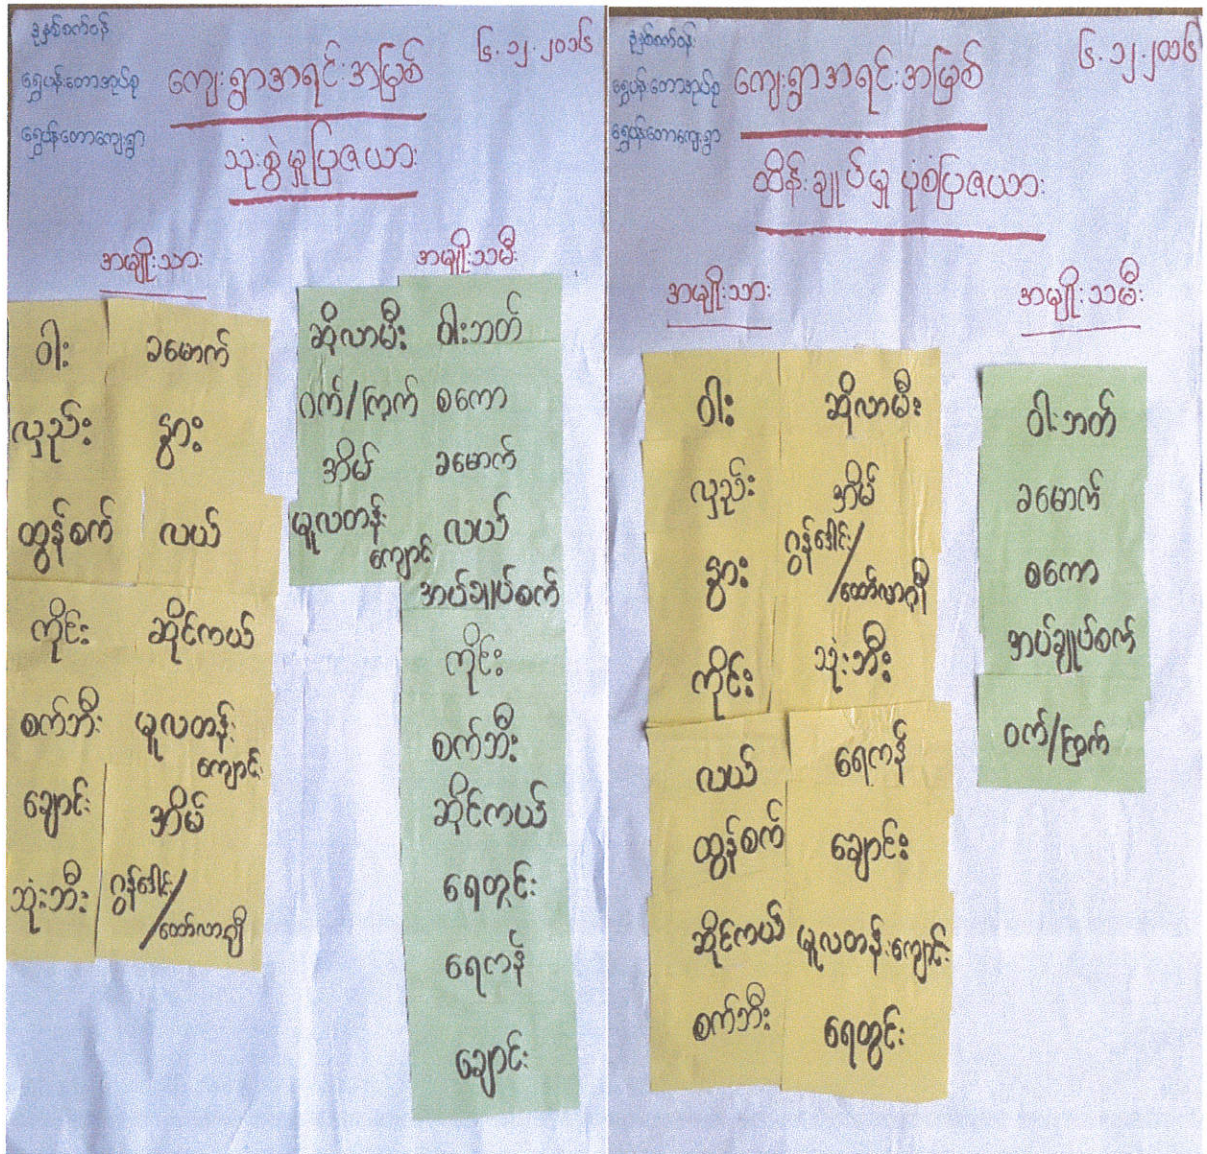 ဒုနှစ်စက်ဝန်
ရွှေပန်းတောအုပ်စု
ရွှေပန်းတောကျေးရွာ
၆.၁၂.၂၀၁၆
ကျေးရွာအရင်းအမြစ်
သုံးစွဲမှုပြဇယား
အမျိုးသား
အမျိုးသမီး
ဝါး
ခမောက်
လှည်း
နွား
ထွန်စက်
လယ်
ကိုင်း
ဆိုင်ကယ်
စက်ဘီး
မူလတန်းကျောင်း
ချောင်း
အိမ်
သုံးဘီး
ဂွန်ဒေါင်း/ထော်လာဂျီ
ဆိုလာမီး
ဝါးဘတ်
ဝက်/ကြက်
စကော
အိမ်
ခမောက်
မူလတန်းကျောင်း
လယ်
အပ်ချုပ်စက်
ကိုင်း
စက်ဘီး
ဆိုင်ကယ်
ရေတွင်း
ရေကန်
ချောင်း
ဒုနှစ်စက်ဝန်
ရွှေပန်းတောအုပ်စု
ရွှေပန်းတောကျေးရွာ
၆.၁၂.၂၀၁၆
ကျေးရွာအရင်းအမြစ်
ထိန်းချုပ်မှု ပုံစံပြဇယား
အမျိုးသား
အမျိုးသမီး
ဝါး
ဆိုလာမီး
လှည်း
အိမ်
နွား
ဂွန်ဒေါင်း/ထော်လာဂျီ
ကိုင်း
သုံးဘီး
လယ်
ရေကန်
ထွန်စက်
ချောင်း
ဆိုင်ကယ်
မူလတန်းကျောင်း
စက်ဘီး
ရေတွင်း
ဝါးဘတ်
ခမောက်
စကော
အပ်ချုပ်စက်
ဝက်/ကြက်